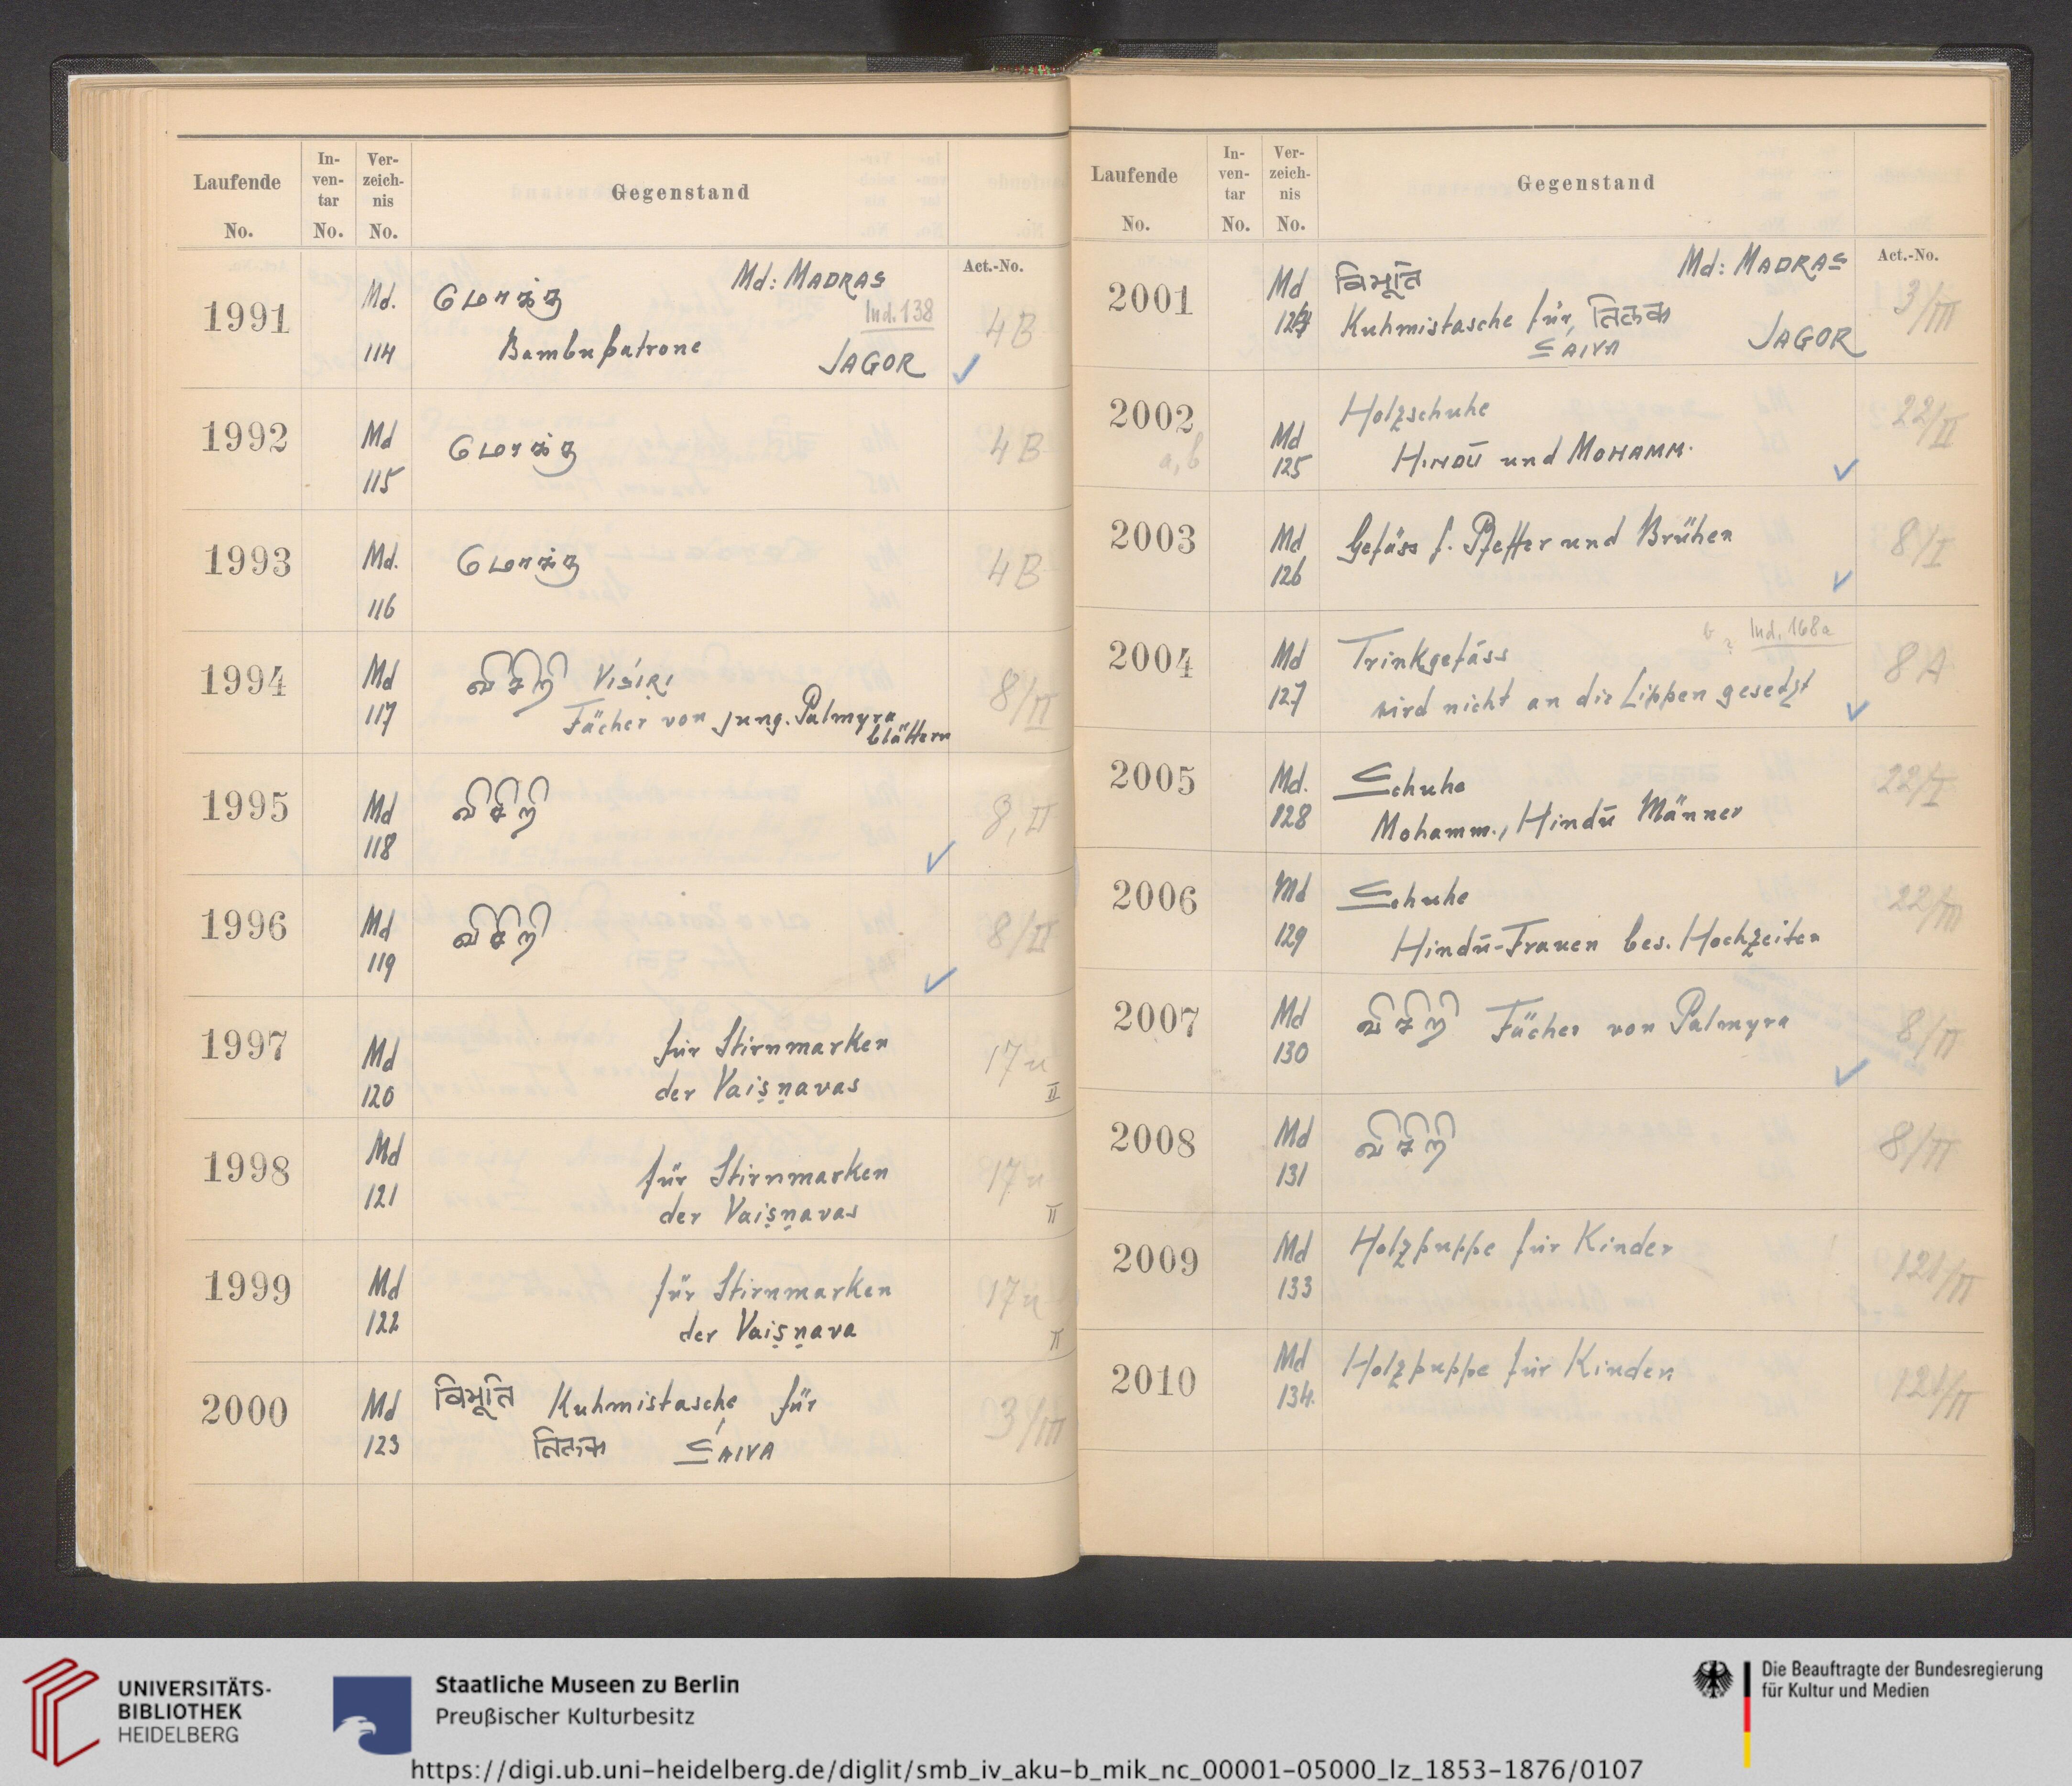 Laufende No.
In-ven-tar No.
Ver-zeich-nis No.
Gegenstand
Act.-No.
1991 Md. 114 Md: MADRAS
Ind. 138
Bambupatrone JAGOR 4B
1992 Md 115 4B
1993 Md. 116 4B
1994 Md 117 விசிறி VIŚIRI
Fächer von jung. Palmyra
blättern 8/II
1995 Md 118 விசிறி 8, II
1996 Md 119 விசிறி 8/II
1997 Md 120 für Stirnmarken
der Vaiṣṇavas 17 II
1998 Md 121 für Stirnmarken
der Vaiṣṇavas 17 II
1999 Md 122 für Stirnmarken
der Vaiṣṇava 17 II
2000 Md 123 विभूति Kuhmistasche für
तिलक ŚAIVA 3/III
Laufende No.
In-ven-tar No.
Ver-zeich-nis No.
Gegenstand
Act.-No.
2001 Md 124 विभूति Md: MADRAS 3/III
Kuhmistasche für तिलक
ŚAIVA JAGOR
2002 a,b Md 125 Holzschuhe 22/II
HINDŪ und MOHAMM.
2003 Md 126 Gefäss f. Pfeffer und Brühen 8/I
2004 Md 127 Trinkgefäss b ? Ind. 168a 8A
wird nicht an die Lippen gesetzt
2005 Md. 128 Schuhe 22/I
Mohamm., Hindū Männer
2006 Md 129 Schuhe 22/III
Hindū-Frauen bes. Hochzeiten
2007 Md 130 விசிறி Fächer von Palmyra 8/II
2008 Md 131 விசிறி 8/II
2009 Md 133 Holzpuppe für Kinder 121/II
2010 Md 134. Holzpuppe für Kinder 121/II
UNIVERSITÄTS-
BIBLIOTHEK
HEIDELBERG
Staatliche Museen zu Berlin
Preußischer Kulturbesitz
Die Beauftragte der Bundesregierung
für Kultur und Medien
https://digi.ub.uni-heidelberg.de/diglit/smb_iv_aku-b_mik_nc_00001-05000_lz_1853-1876/0107